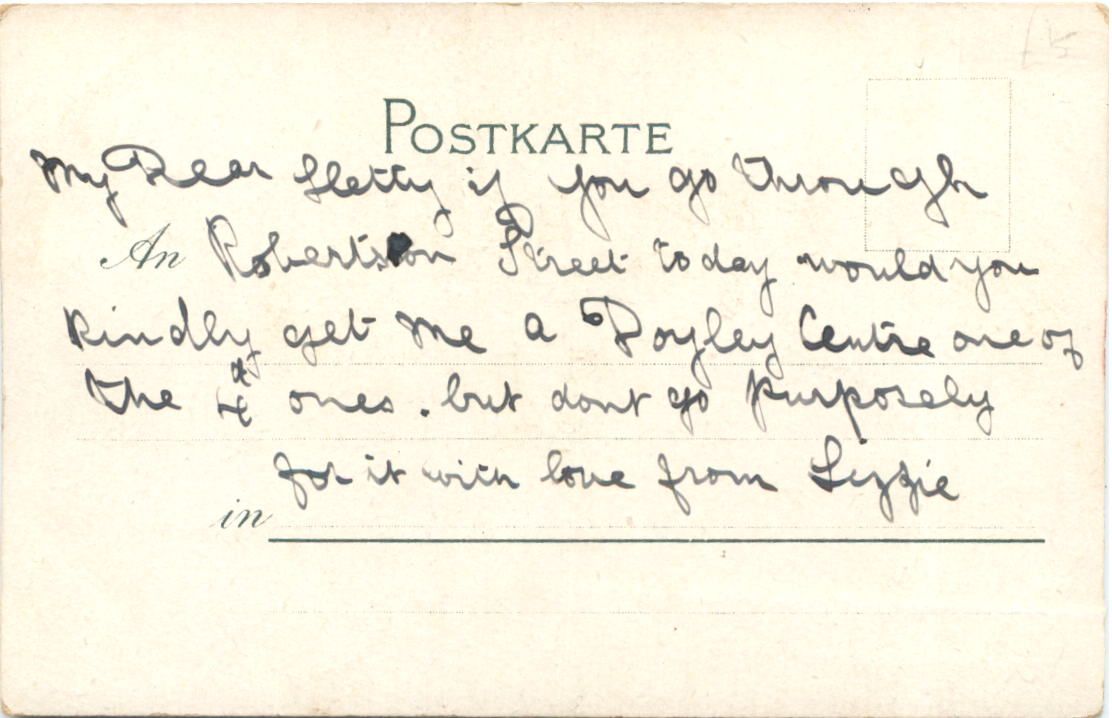 POSTKARTE
My Dear Hetty if you go through
An Robertson Street today would you
kindly get me a Doyley Centre one of
the 4d ones. but dont go purposely
for it with love from Lizzie
in